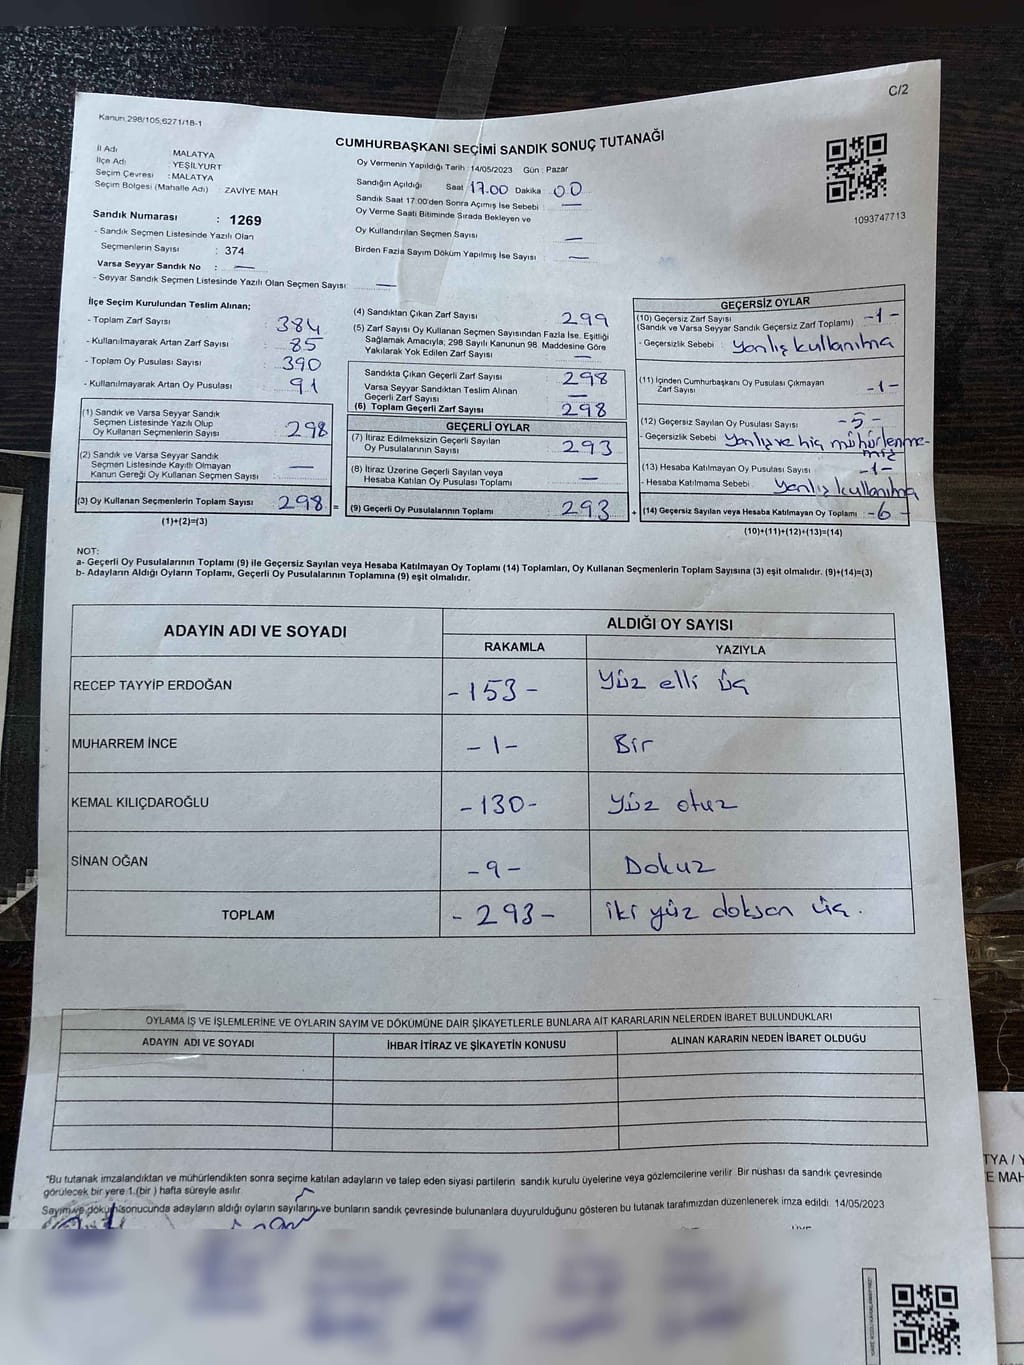 C/2
Kanun:298/105,6271/18-1
CUMHURBAŞKANI SEÇİMİ SANDIK SONUÇ TUTANAĞI
İl Adı MALATYA
İlçe Adı : YEŞİLYURT
Seçim Çevresi : MALATYA
Seçim Bölgesi (Mahalle Adı) : ZAVİYE MAH
Sandık Numarası : 1269
- Sandık Seçmen Listesinde Yazılı Olan
Seçmenlerin Sayısı : 374
Varsa Seyyar Sandık No : —
- Seyyar Sandık Seçmen Listesinde Yazılı Olan Seçmen Sayısı: —
Oy Vermenin Yapıldığı Tarih : 14/05/2023 Gün : Pazar
Sandığın Açıldığı Saat 17.00 Dakika : 00
Sandık Saat 17:00'den Sonra Açımış İse Sebebi : —
Oy Verme Saati Bitiminde Sırada Bekleyen ve
Oy Kullandırılan Seçmen Sayısı —
Birden Fazla Sayım Döküm Yapılmış İse Sayısı : —
1093747713
İlçe Seçim Kurulundan Teslim Alınan;
- Toplam Zarf Sayısı : 384
- Kullanılmayarak Artan Zarf Sayısı : 85
- Toplam Oy Pusulası Sayısı : 390
- Kullanılmayarak Artan Oy Pusulası : 91
(1) Sandık ve Varsa Seyyar Sandık
Seçmen Listesinde Yazılı Olup
Oy Kullanan Seçmenlerin Sayısı : 298
(2) Sandık ve Varsa Seyyar Sandık
Seçmen Listesinde Kayıtlı Olmayan
Kanun Gereği Oy Kullanan Seçmen Sayısı : —
(3) Oy Kullanan Seçmenlerin Toplam Sayısı : 298 =
(1)+(2)=(3)
(4) Sandıktan Çıkan Zarf Sayısı : 299
(5) Zarf Sayısı Oy Kullanan Seçmen Sayısından Fazla İse, Eşitliği
Sağlamak Amacıyla; 298 Sayılı Kanunun 98. Maddesine Göre
Yakılarak Yok Edilen Zarf Sayısı : —
Sandıkta Çıkan Geçerli Zarf Sayısı : 298
Varsa Seyyar Sandıktan Teslim Alınan
Geçerli Zarf Sayısı : —
(6) Toplam Geçerli Zarf Sayısı : 298
GEÇERLİ OYLAR
(7) İtiraz Edilmeksizin Geçerli Sayılan
Oy Pusulalarının Sayısı : 293
(8) İtiraz Üzerine Geçerli Sayılan veya
Hesaba Katılan Oy Pusulası Toplamı : —
(9) Geçerli Oy Pusulalarının Toplamı : 293 +
GEÇERSİZ OYLAR
(10) Geçersiz Zarf Sayısı
(Sandık ve Varsa Seyyar Sandık Geçersiz Zarf Toplamı) : -1-
- Geçersizlik Sebebi : Yanlış kullanılma
(11) İçinden Cumhurbaşkanı Oy Pusulası Çıkmayan
Zarf Sayısı : -1-
(12) Geçersiz Sayılan Oy Pusulası Sayısı : -5-
- Geçersizlik Sebebi : Yanlış ve hiç mühürlenme-
miş
(13) Hesaba Katılmayan Oy Pusulası Sayısı : -1-
- Hesaba Katılmama Sebebi : Yanlış kullanılma
(14) Geçersiz Sayılan veya Hesaba Katılmayan Oy Toplamı : -6-
(10)+(11)+(12)+(13)=(14)
NOT:
a- Geçerli Oy Pusulalarının Toplamı (9) ile Geçersiz Sayılan veya Hesaba Katılmayan Oy Toplamı (14) Toplamları, Oy Kullanan Seçmenlerin Toplam Sayısına (3) eşit olmalıdır. (9)+(14)=(3)
b- Adayların Aldığı Oyların Toplamı, Geçerli Oy Pusulalarının Toplamına (9) eşit olmalıdır.
ADAYIN ADI VE SOYADI ALDIĞI OY SAYISI
RAKAMLA YAZIYLA
RECEP TAYYİP ERDOĞAN -153- Yüz elli üç
MUHARREM İNCE -1- Bir
KEMAL KILIÇDAROĞLU -130- Yüz otuz
SİNAN OĞAN -9- Dokuz
TOPLAM -293- iki yüz doksan üç.
OYLAMA İŞ VE İŞLEMLERİNE VE OYLARIN SAYIM VE DÖKÜMÜNE DAİR ŞİKAYETLERLE BUNLARA AİT KARARLARIN NELERDEN İBARET BULUNDUKLARI
ADAYIN ADI VE SOYADI İHBAR İTİRAZ VE ŞİKAYETİN KONUSU ALINAN KARARIN NEDEN İBARET OLDUĞU
*Bu tutanak imzalandıktan ve mühürlendikten sonra seçime katılan adayların ve talep eden siyasi partilerin sandık kurulu üyelerine veya gözlemcilerine verilir. Bir nüshası da sandık çevresinde
görülecek bir yere 1 (bir) hafta süreyle asılır.
Sayım ve döküm sonucunda adayların aldığı oyların sayılarını ve bunların sandık çevresinde bulunanlara duyurulduğunu gösteren bu tutanak tarafımızdan düzenlenerek imza edildi. 14/05/2023
TYA / Y
E MAH